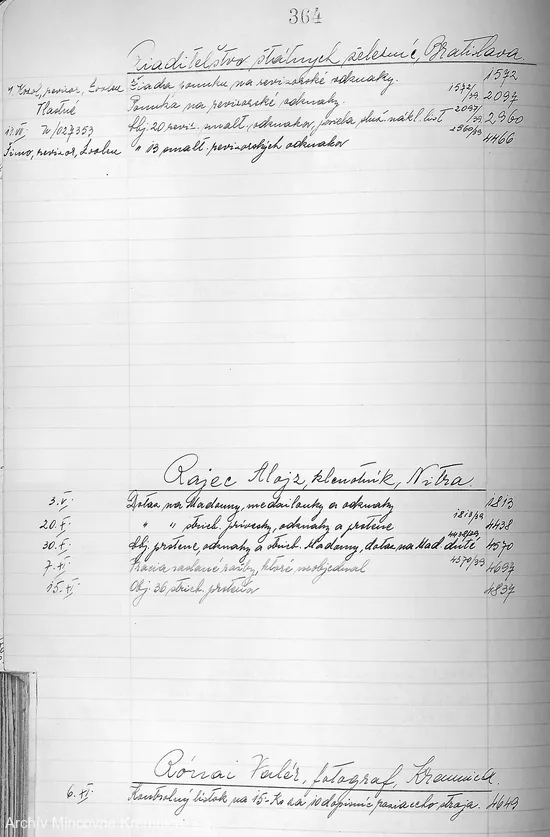 364
Riaditeľstvo štátnych železníc, Bratislava.
revízor, Zvolen Žiada ponuku na revízorské odznaky. 1572
Vlastné Ponuka na revízorské odznaky. 1572/39 2097
17.VI. Obj. 20 reviz. smalt. odznakov, podľa nákl. list 2097/39 2960
revízor, Zvolen " 13 smalt. revízorských odznakov 2960/39 4466
Rajec Alojz, klenotník, Nitra.
3.V. Dotaz na Madonny, medailonky a odznaky 1813
20.X. " " strieb. prívesky, odznaky a prstene 1813/39 4438
30.X. Obj. prstene, odznaky a strieb. Madony, dotaz na Mad. duté 4438/39 4570
7.XI. Vracia zaslané ražby, ktoré neobjednal 4570/39 4697
15.XI. Obj. 36 strieb. prsteňov 4837
Rónai Valér, fotograf, Kremnica
6.XI. Kontrolný lístok na 15.- Ks za 10 dopisníc raziaceho stroja. 4649
Archív Mincovne Kremnica